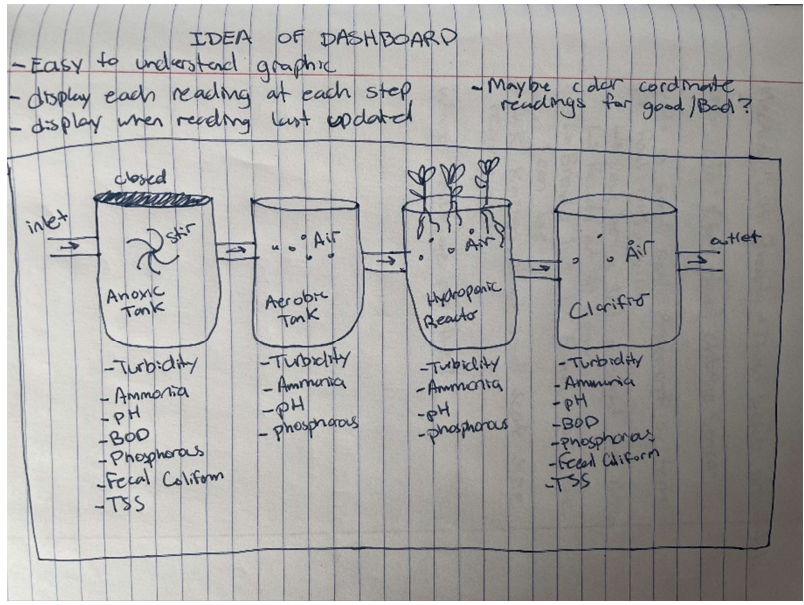 IDEA OF DASHBOARD
- Easy to understand graphic
- display each reading at each step
- display when reading last updated
- Maybe color cordinate
readings for good/Bad?
closed
inlet
stir
Anoxic
Tank
Air
Aerobic
Tank
Air
Hydroponic
Reactor
Air
Clarifier
outlet
- Turbidity
- Ammonia
- pH
- BOD
- Phosphorous
- Fecal Coliform
- TSS
- Turbidity
- Ammonia
- pH
- phosphorous
- Turbidity
- Ammonia
- pH
- phosphorous
- Turbidity
- Ammonia
- pH
- BOD
- phosphorous
- Fecal Coliform
- TSS